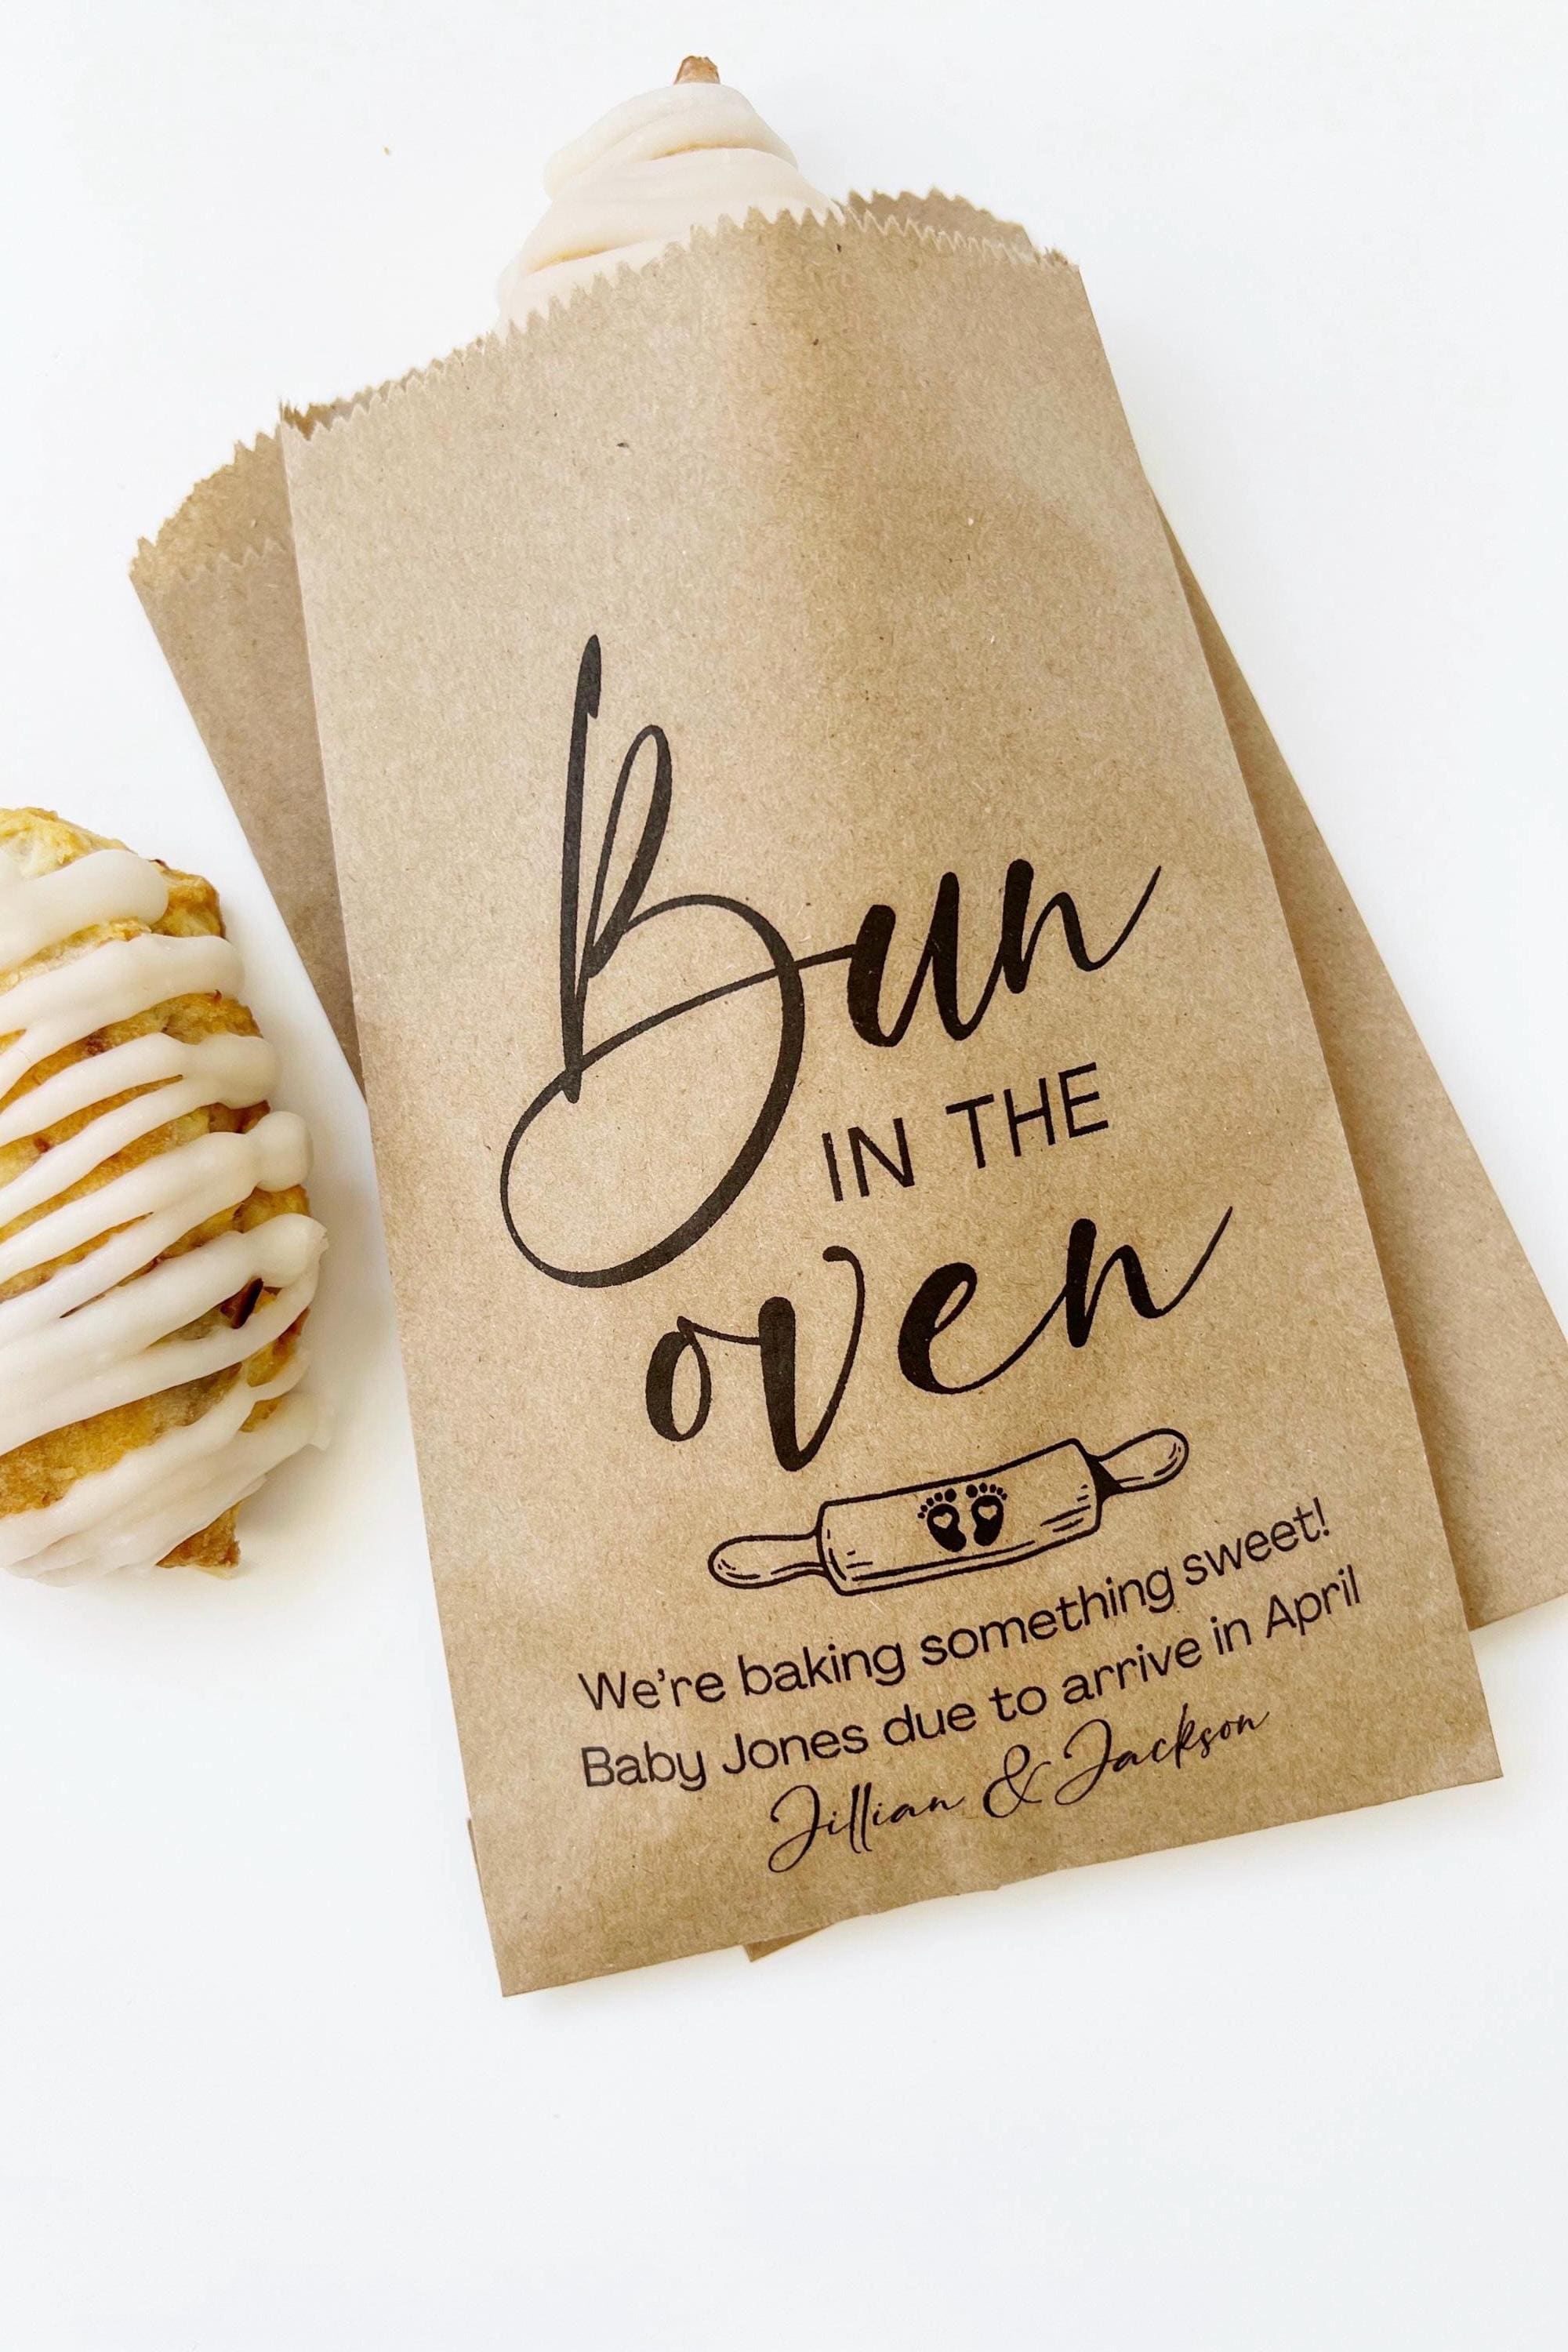 Bun
IN THE
oven
We're baking something sweet!
Baby Jones due to arrive in April
Jillian & Jackson